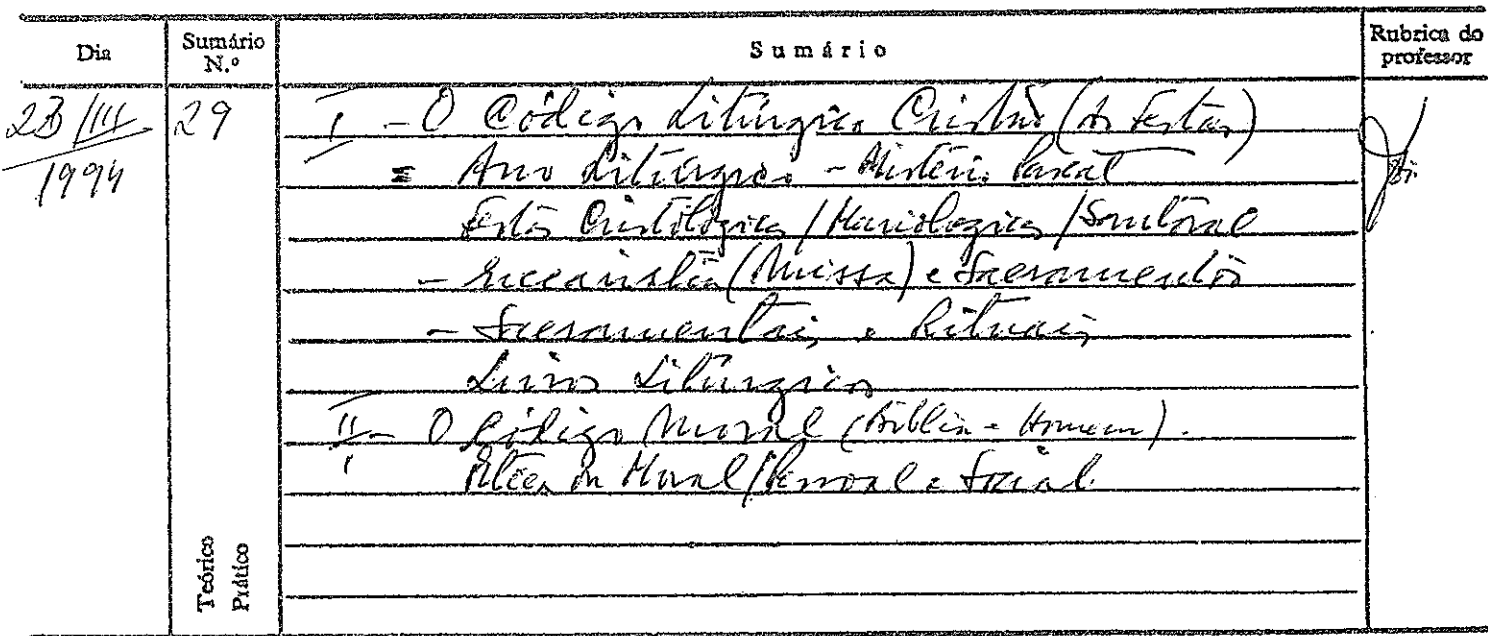 Dia
Sumário N.º
Sumário
Rubrica do professor
23/III/1994
29
I - O Código Litúrgico Cristão (As Festas)
= Ano Litúrgico - Mistério Pascal
Festas Cristológicas / Mariológicas / Santoral
- Eucaristia (Missa) e Sacramentos
- Sacramentais e Rituais
Livros Litúrgicos
II - O Código Moral (Bíblia - Homem).
Ética ou Moral / Pessoal e Social
Teórico
Prático